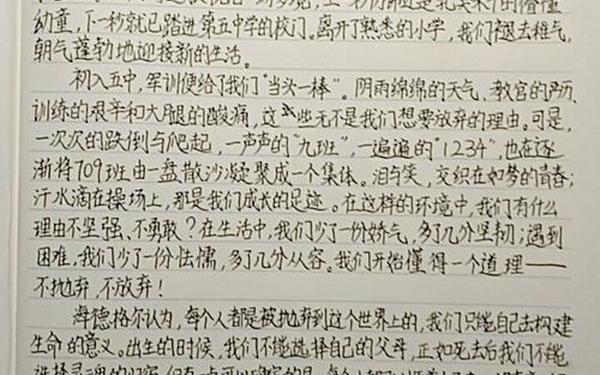 幼童，下一秒就已踏进第五中学的校门。离开了熟悉的小学，我们褪去稚气，
朝气蓬勃地迎接新的生活。
初入五中，军训便给了我们"当头一棒"。阴雨绵绵的天气、教官的严厉、
训练的艰辛和大腿的酸痛，这些无不是我们想要放弃的理由。可是，
一次次的跌倒与爬起，一声声的"九班"，一遍遍的"1234"，也在逐
渐将709班由一盘散沙凝聚成一个集体。泪与笑，交织在如梦的青春；
汗水滴在操场上，那是我们成长的足迹。在这样的环境中，我们有什么
理由不坚强、不勇敢？在生活中，我们少了一份娇气，多了几分坚韧；遇到
困难，我们少了一份怯懦，多了几分从容。我们开始懂得一个道理——
不抛弃，不放弃！
海德格尔认为，每个人都是被抛弃到这个世界上的，我们只能自己去构建
生命的意义。出生的时候，我们不能选择自己的父母，正如死去后我们不能